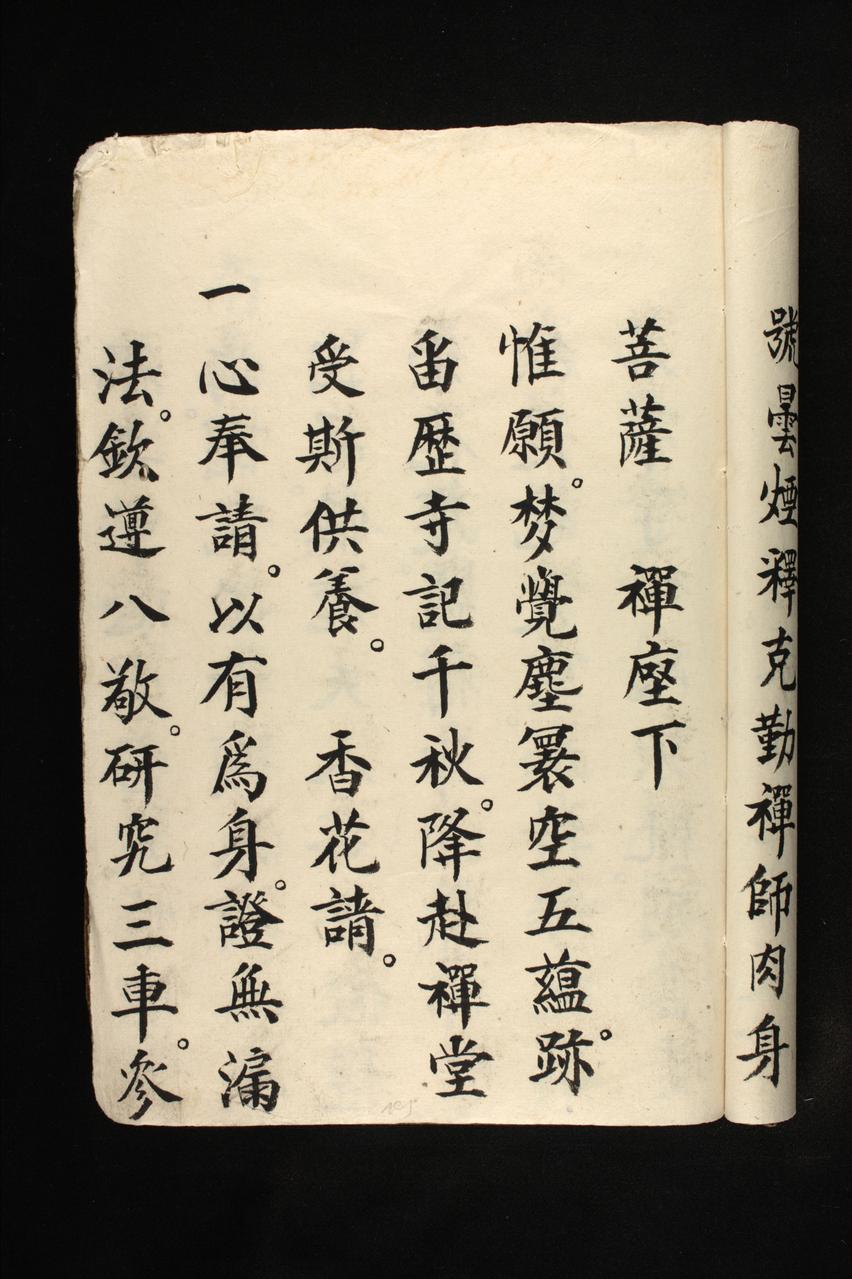 號曇煙釋克勤禪師肉身
菩薩　禪座下
惟願。梦覺塵寰空五蘊。跡
畱歷寺記千秋。降赴禪堂
受斯供養。　香花請。
一心奉請。以有爲身。證無漏
法。欽遵八敬。研究三車。參